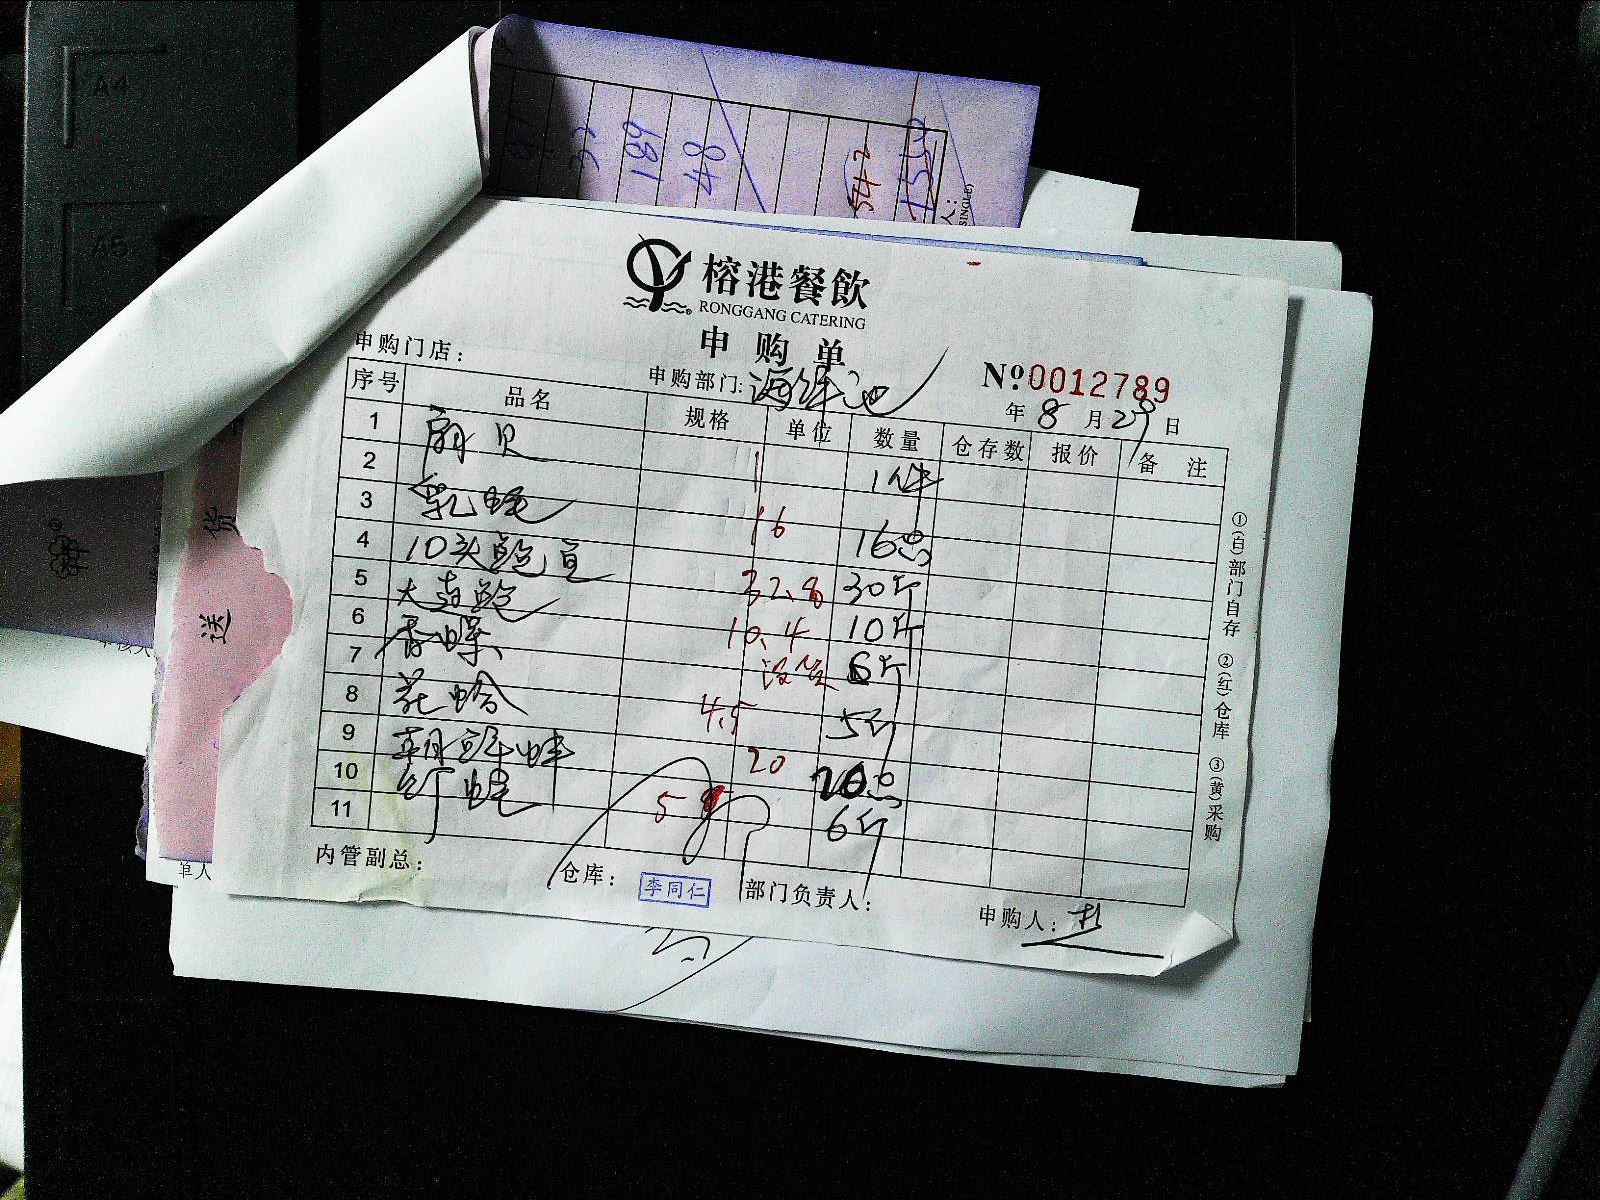 A4
A5
32
189
48
542
1550
人：
SINGLE)
榕港餐飲
RONGGANG CATERING
申购单
申购门店：
申购部门: 海鲜池
Nº0012789
年 8 月 29 日
序号 品名 规格 单位 数量 仓存数 报价 备注
1 扇贝 1 1件
2
3 16 16只
4 10头鲍 32.8 30斤
5 大 鲍 10.4 10斤
6 香螺 没货 6斤
7
8 花蛤 4.5 5斤
9 朝鲜蚌 20 20只
10 5 6斤
11
①(白)部门自存 ②(红)仓库 ③(黄)采购
内管副总：
仓库： 李同仁
部门负责人：
申购人：
货
送
单人